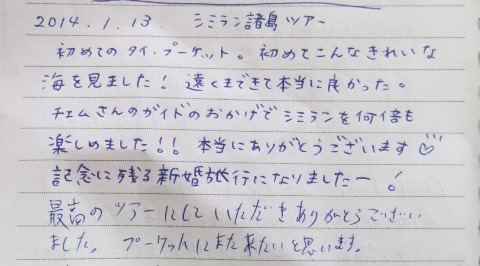 2014.1.13 シミラン諸島ツアー
初めてのタイ・プーケット。初めてこんなきれいな
海を見ました！遠くまできて本当に良かった。
チェムさんのガイドのおかげでシミランを何倍も
楽しめました！！本当にありがとうございます♡
記念に残る新婚旅行になりましたー！
最高のツアーにしていただきありがとうござい
ました。プーケットにまた来たいと思います。